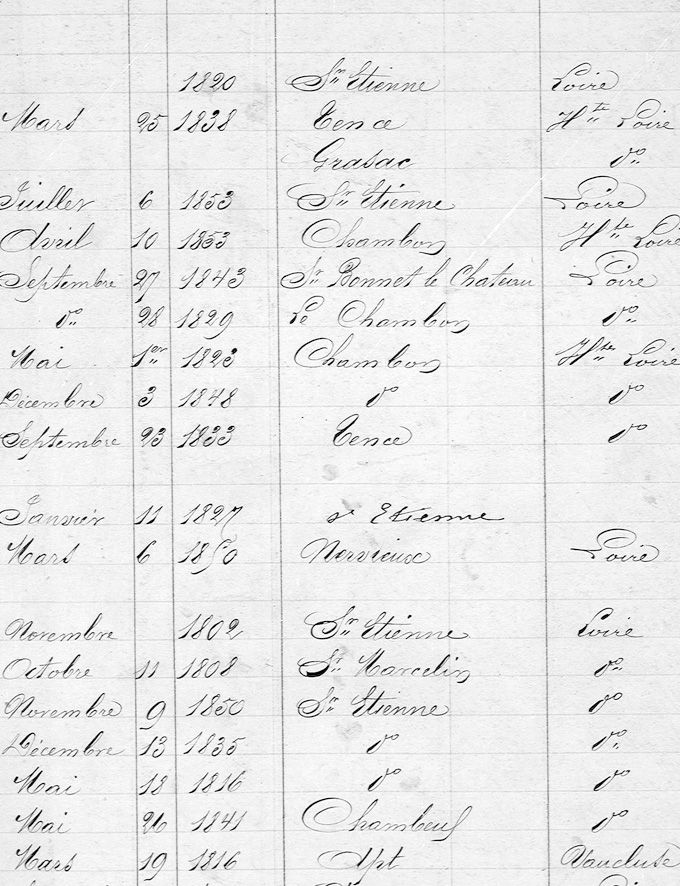 1820 St Etienne Loire
Mars 25 1838 Tence Hte Loire
Grasac do
Juillet 6 1853 St Etienne Loire
Avril 10 1853 Chambon Hte Loire
Septembre 27 1843 St Bonnet le Chateau Loire
do 28 1829 Le Chambon do
Mai 1er 1823 Chambon Hte Loire
Décembre 3 1848 do do
Septembre 23 1833 Tence do
Janvier 11 1827 St Etienne
Mars 6 1850 Nervieux Loire
Novembre 1802 St Etienne Loire
Octobre 11 1808 St Marcelin do
Novembre 9 1850 St Etienne do
Décembre 13 1835 do do
Mai 18 1816 do do
Mai 26 1841 Chambeuf do
Mars 19 1816 Apt Vaucluse